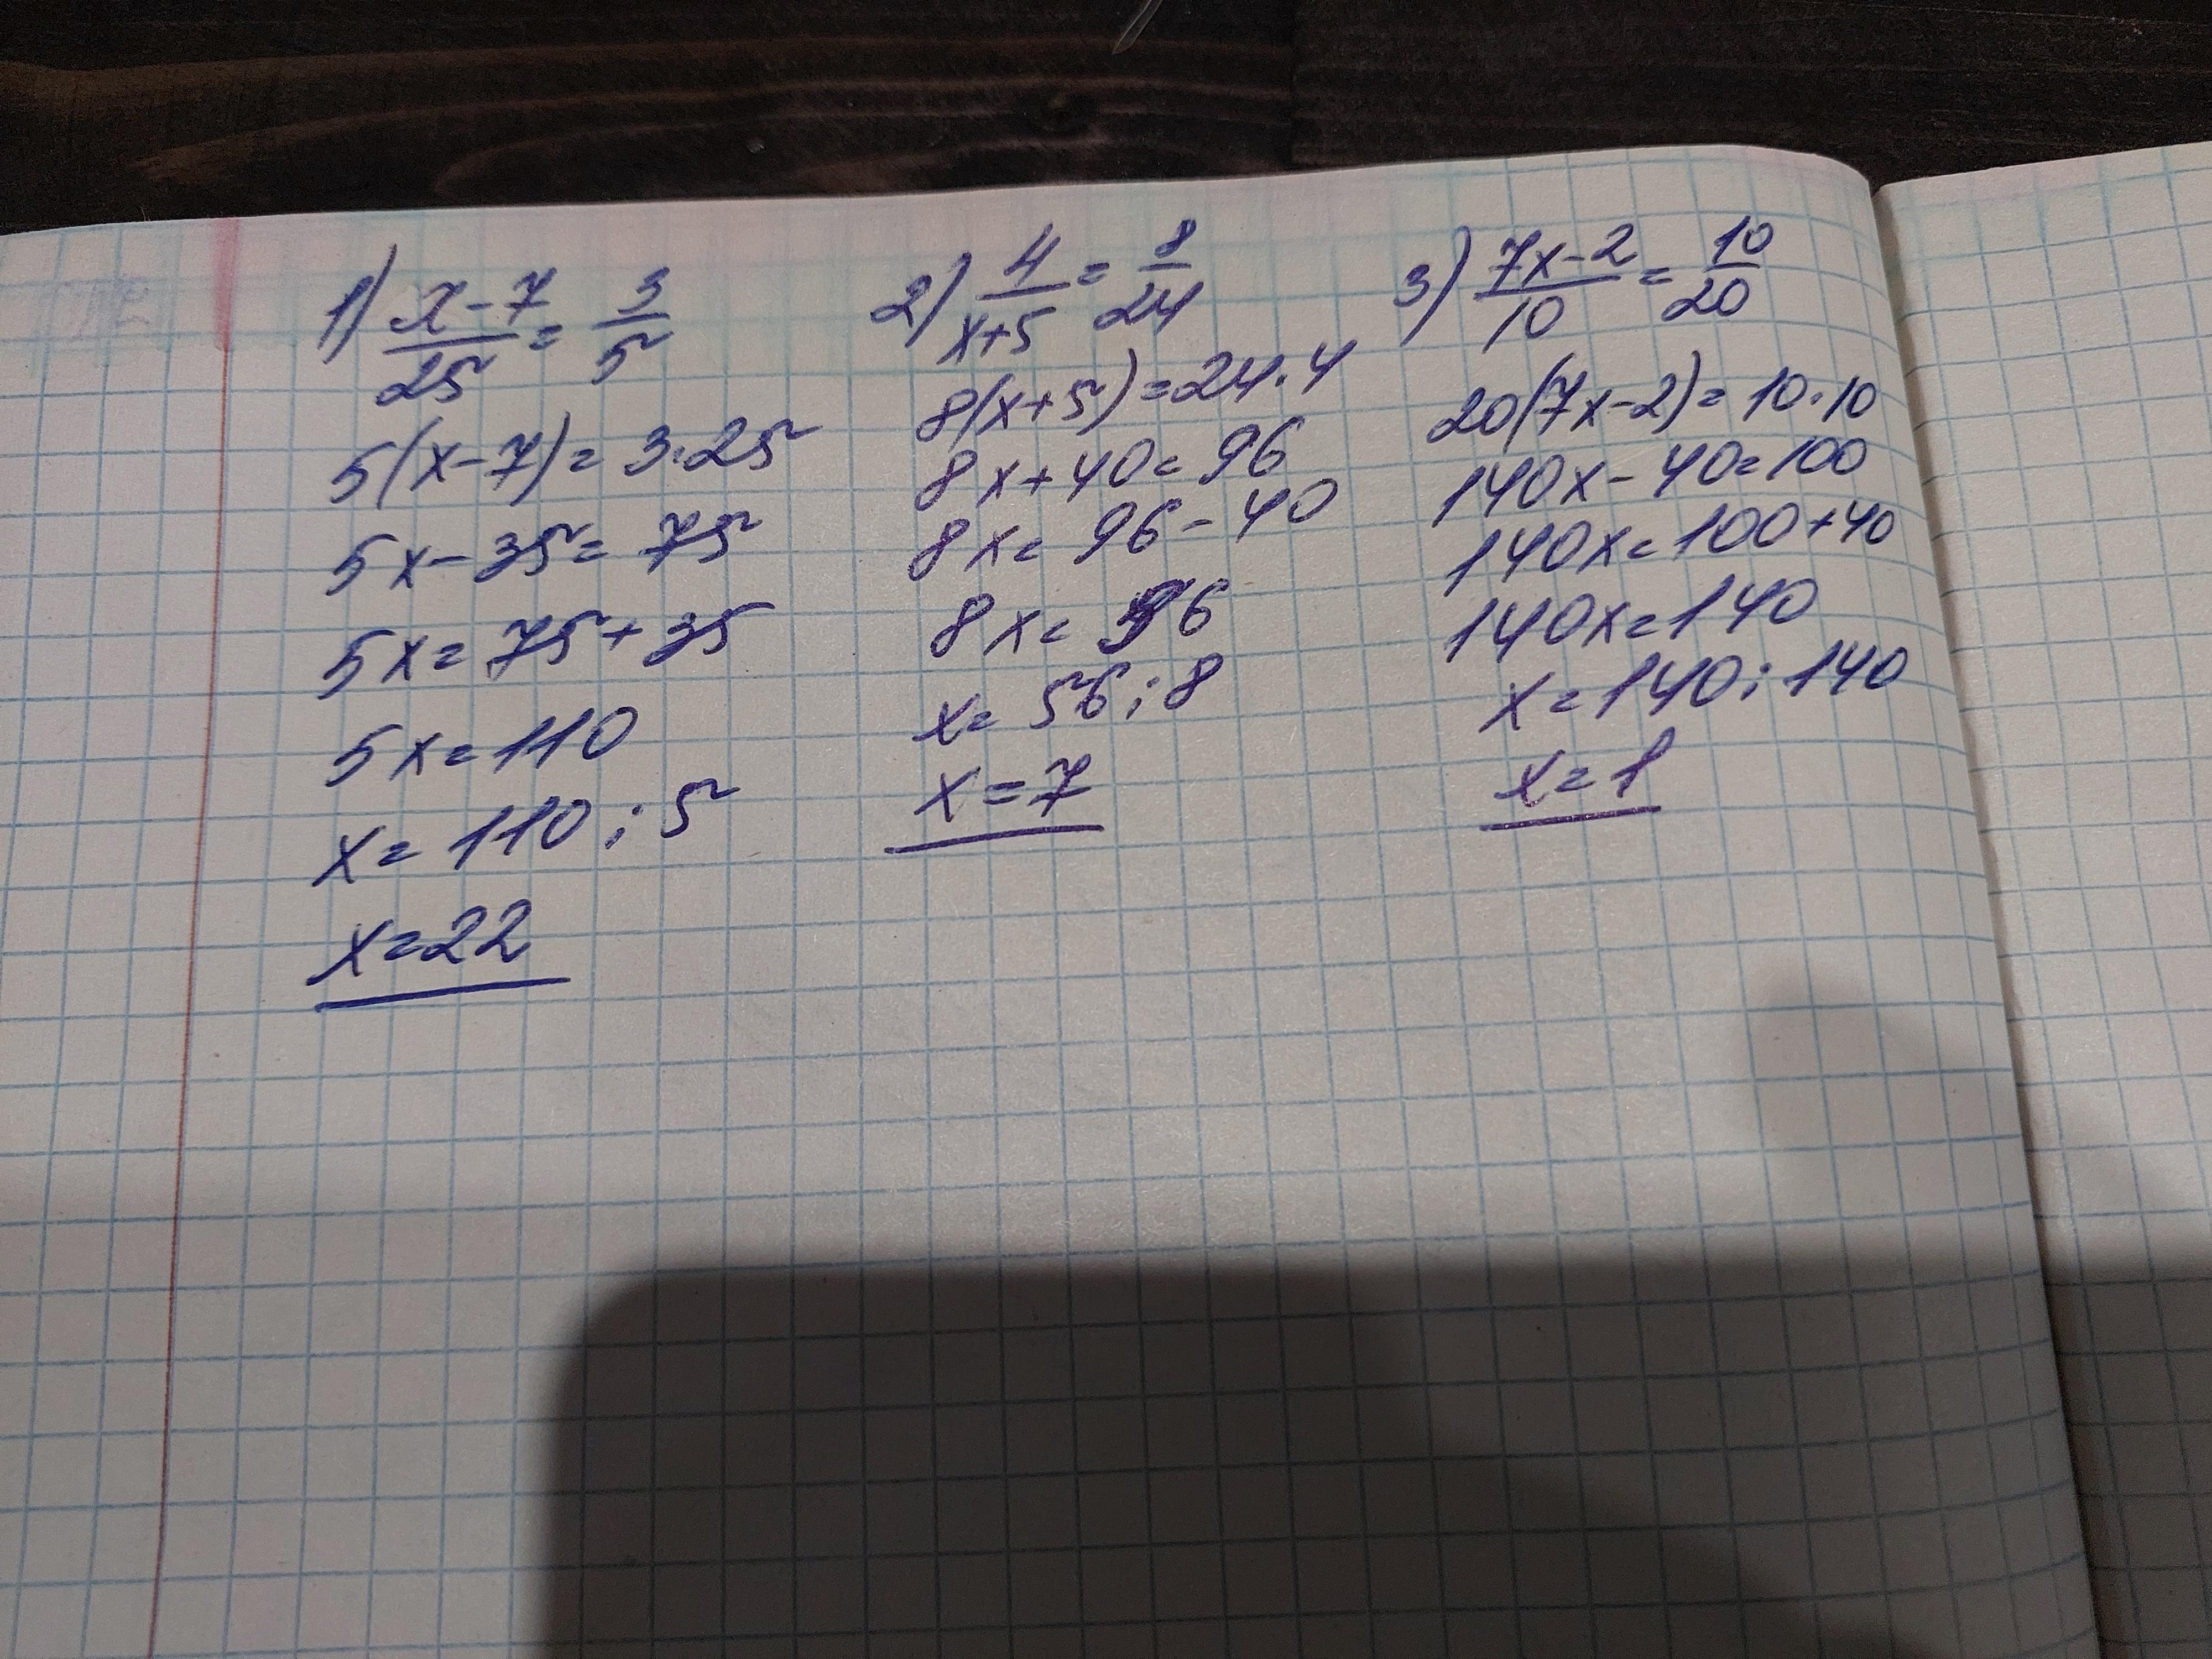 1) x-7/25 = 3/5
5(x-7)= 3·25
5x-35= 75
5x= 75+35
5x=110
x= 110 : 5
x=22
2) 4/x+5 = 8/24
8(x+5)=24·4
8x+40= 96
8x= 96-40
8x= 56
x= 56 : 8
x=7
3) 7x-2/10 = 10/20
20(7x-2)= 10·10
140x-40=100
140x=100+40
140x=140
x=140 : 140
x=1